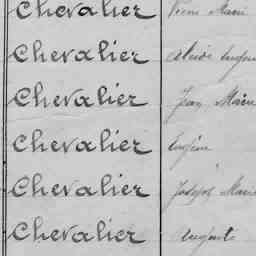 Chevalier Pierre Marie
Chevalier
Chevalier Jean Marie
Chevalier Eugène
Chevalier Joseph Marie
Chevalier Auguste